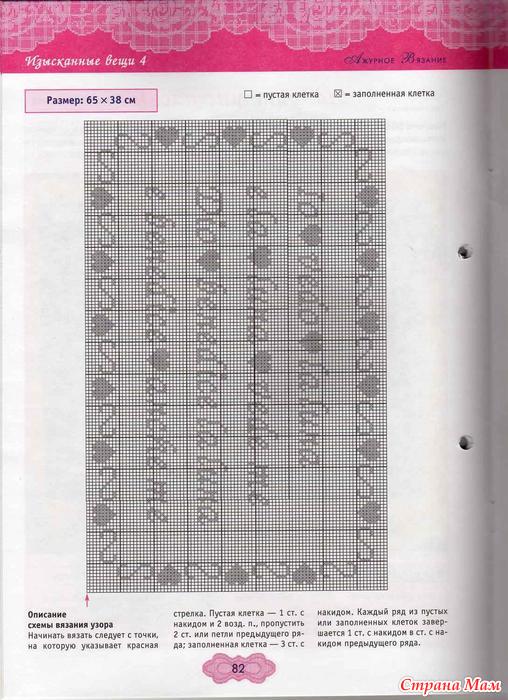 Изысканные вещи 4
Ажурное Вязание
Размер: 65 × 38 см
= пустая клетка
= заполненная клетка
Io vedo la luna
e la luna vede me
Dio benedice la luna
e benedice anche me
Описание
схемы вязания узора
Начинать вязать следует с точки,
на которую указывает красная
стрелка. Пустая клетка — 1 ст. с
накидом и 2 возд. п., пропустить
2 ст. или петли предыдущего ря-
да; заполненная клетка — 3 ст. с
накидом. Каждый ряд из пустых
или заполненных клеток завер-
шается 1 ст. с накидом в ст. с на-
кидом предыдущего ряда.
82
Страна Мам